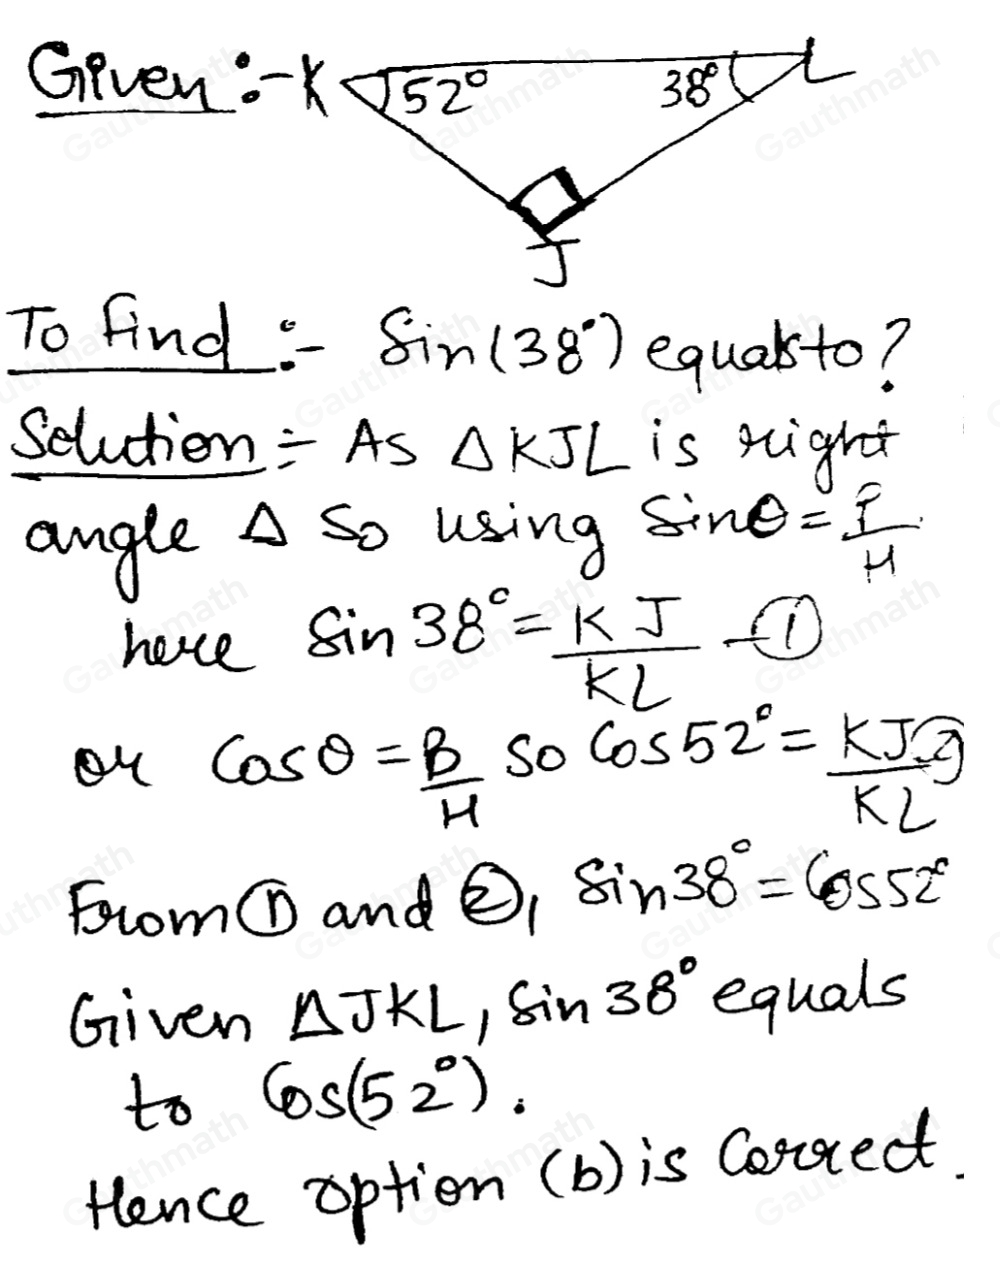 Given :- K 52° 38° L
J
To find :- Sin(38°) equals to?
Solution :- As △KJL is right
angle △ So using Sinθ = P/H
here Sin 38° = KJ/KL - ①
or Cosθ = B/H So Cos 52° = KJ/KL ②
From ① and ②, Sin 38° = Cos 52°
Given △JKL, Sin 38° equals
to Cos(52°).
Hence option (b) is Correct.
Gauthmath